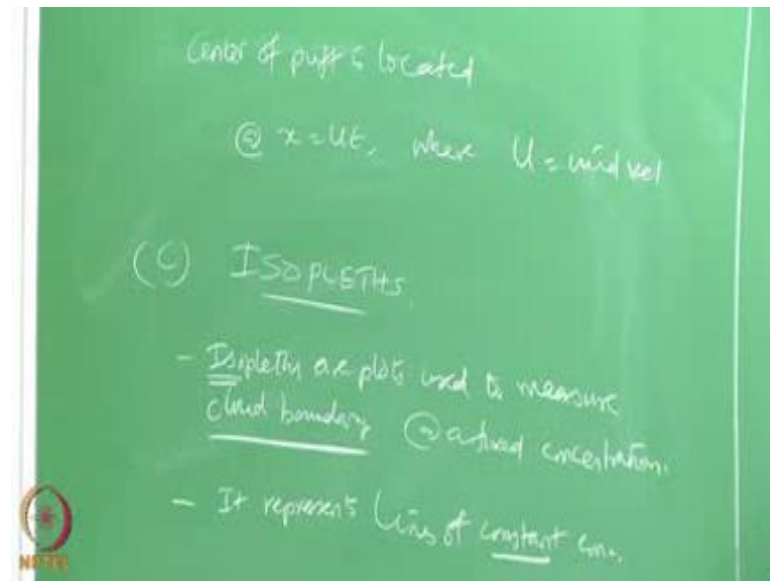 Center of puff is located
@ x = Ut, where U = wind vel
(c) ISOPLETHS.
- Isopleths are plots used to measure
cloud boundary @ a fixed concentration.
- It represents lines of constant conc.
NPTEL